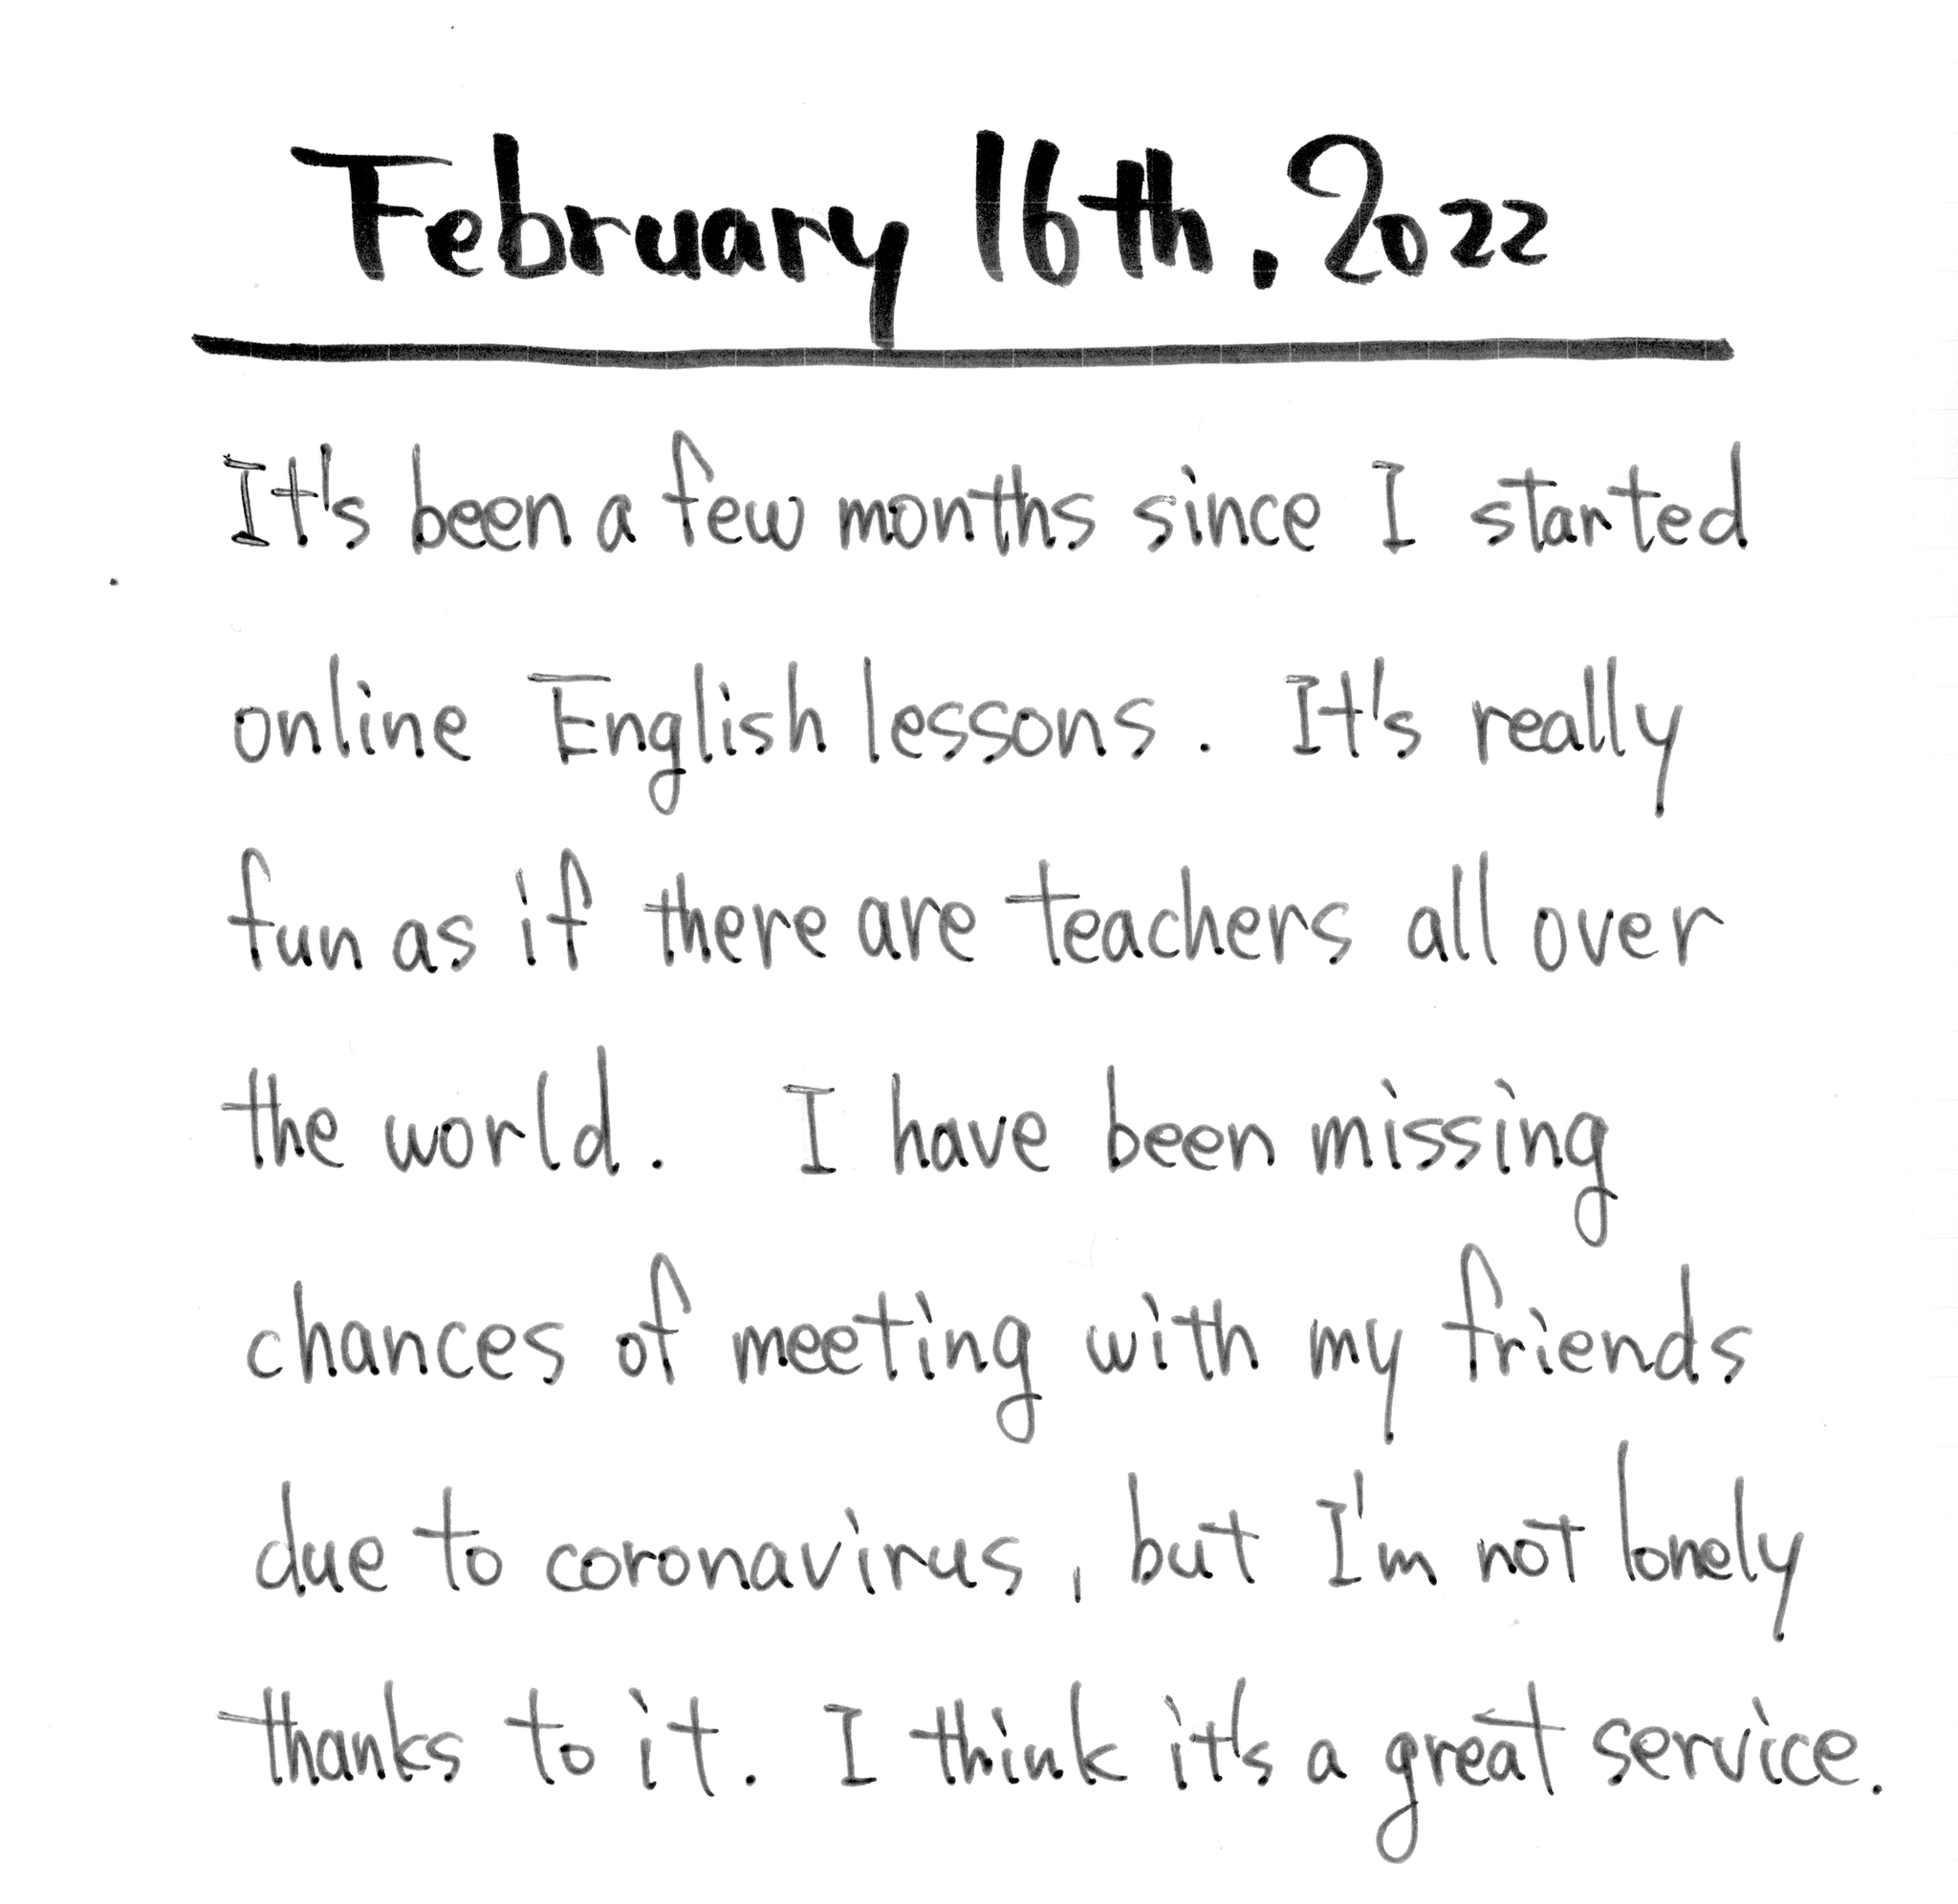 February 16th. 2022
It's been a few months since I started
online English lessons. It's really
fun as if there are teachers all over
the world. I have been missing
chances of meeting with my friends
due to coronavirus, but I'm not lonely
thanks to it. I think it's a great service.